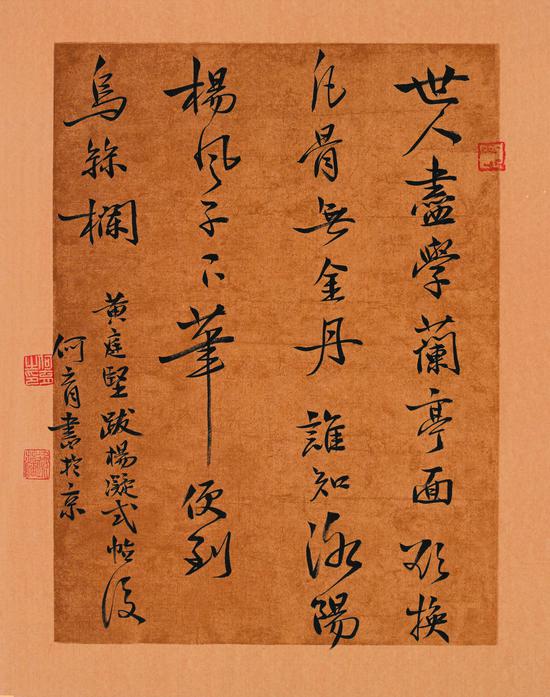 世人盡學蘭亭面欲換
凡骨無金丹誰知洛陽
楊風子下筆便到
烏絲欄
黃庭堅跋楊凝式帖後
何育書於京